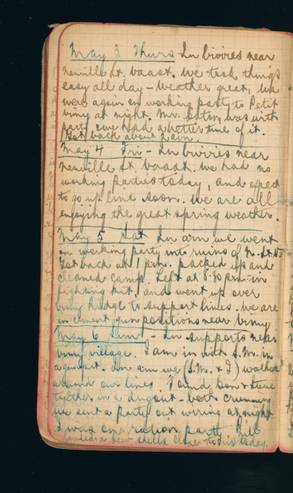 May 3 Thurs - In bivies near
neuville st. vaast. We took things
easy all day - weather great. We
went again on working party to Petit
vimy at night. Mr. was with
party, we had a better time of it.
Got back about 2 a.m.
May 4 Fri - In bivies near
neuville st. vaast. We had no
working parties today, and expect
to go up line soon. We are all
enjoying the great spring weather.
May 5 Sat In a.m. we went
on working party into ruins of N. St. V.
Got back at 1 p.m. packed up and
cleaned camp. Left at 8.30 p.m. in
fighting kit, and went up over
vimy Ridge to support lines. We are
in cement gun positions near vimy
May 6 Sun - In supports near
vimy village. I am in with S.M. in
a gunpit. In a.m. we (S.M. & I) walked
around our lines. Found Don & Steve
together in a dugout - both crummy
we sent a party out wiring at night
I was on ration party. Fritz
landed a few shells close to us today